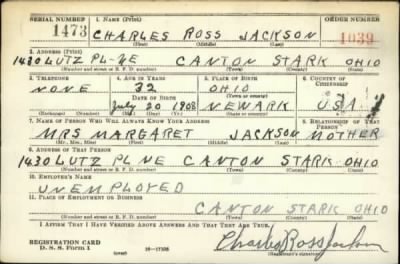 SERIAL NUMBER 1. NAME (Print) ORDER NUMBER
1473 CHARLES ROSS JACKSON 1039
(First) (Middle) (Last)
3. ADDRESS (Print)
1430 LUTZ PL-NE CANTON STARK OHIO
(Number and street or R. F. D. number) (Town) (County) (State)
3. TELEPHONE 4. AGE IN YEARS 5. PLACE OF BIRTH 6. COUNTRY OF CITIZENSHIP
NONE 32 OHIO
DATE OF BIRTH (Town or county)
July 20 1908 NEWARK USA
(Exchange) (Number) (Mo.) (Day) (Yr.) (State or country)
7. NAME OF PERSON WHO WILL ALWAYS KNOW YOUR ADDRESS 8. RELATIONSHIP OF THAT PERSON
MRS MARGARET JACKSON MOTHER
(Mr., Mrs., Miss) (First) (Middle) (Last)
9. ADDRESS OF THAT PERSON
1430 LUTZ PL NE CANTON STARK-OHIO
(Number and street or R. F. D. number) (Town) (County) (State)
10. EMPLOYER'S NAME
UNEMPLOYED
11. PLACE OF EMPLOYMENT OR BUSINESS
CANTON STARK OHIO
(Number and street or R. F. D. number) (Town) (County) (State)
I AFFIRM THAT I HAVE VERIFIED ABOVE ANSWERS AND THAT THEY ARE TRUE.
REGISTRATION CARD
D. S. S. Form 1 (over) 16-17105 Charles Ross Jackson
(Registrant's signature)